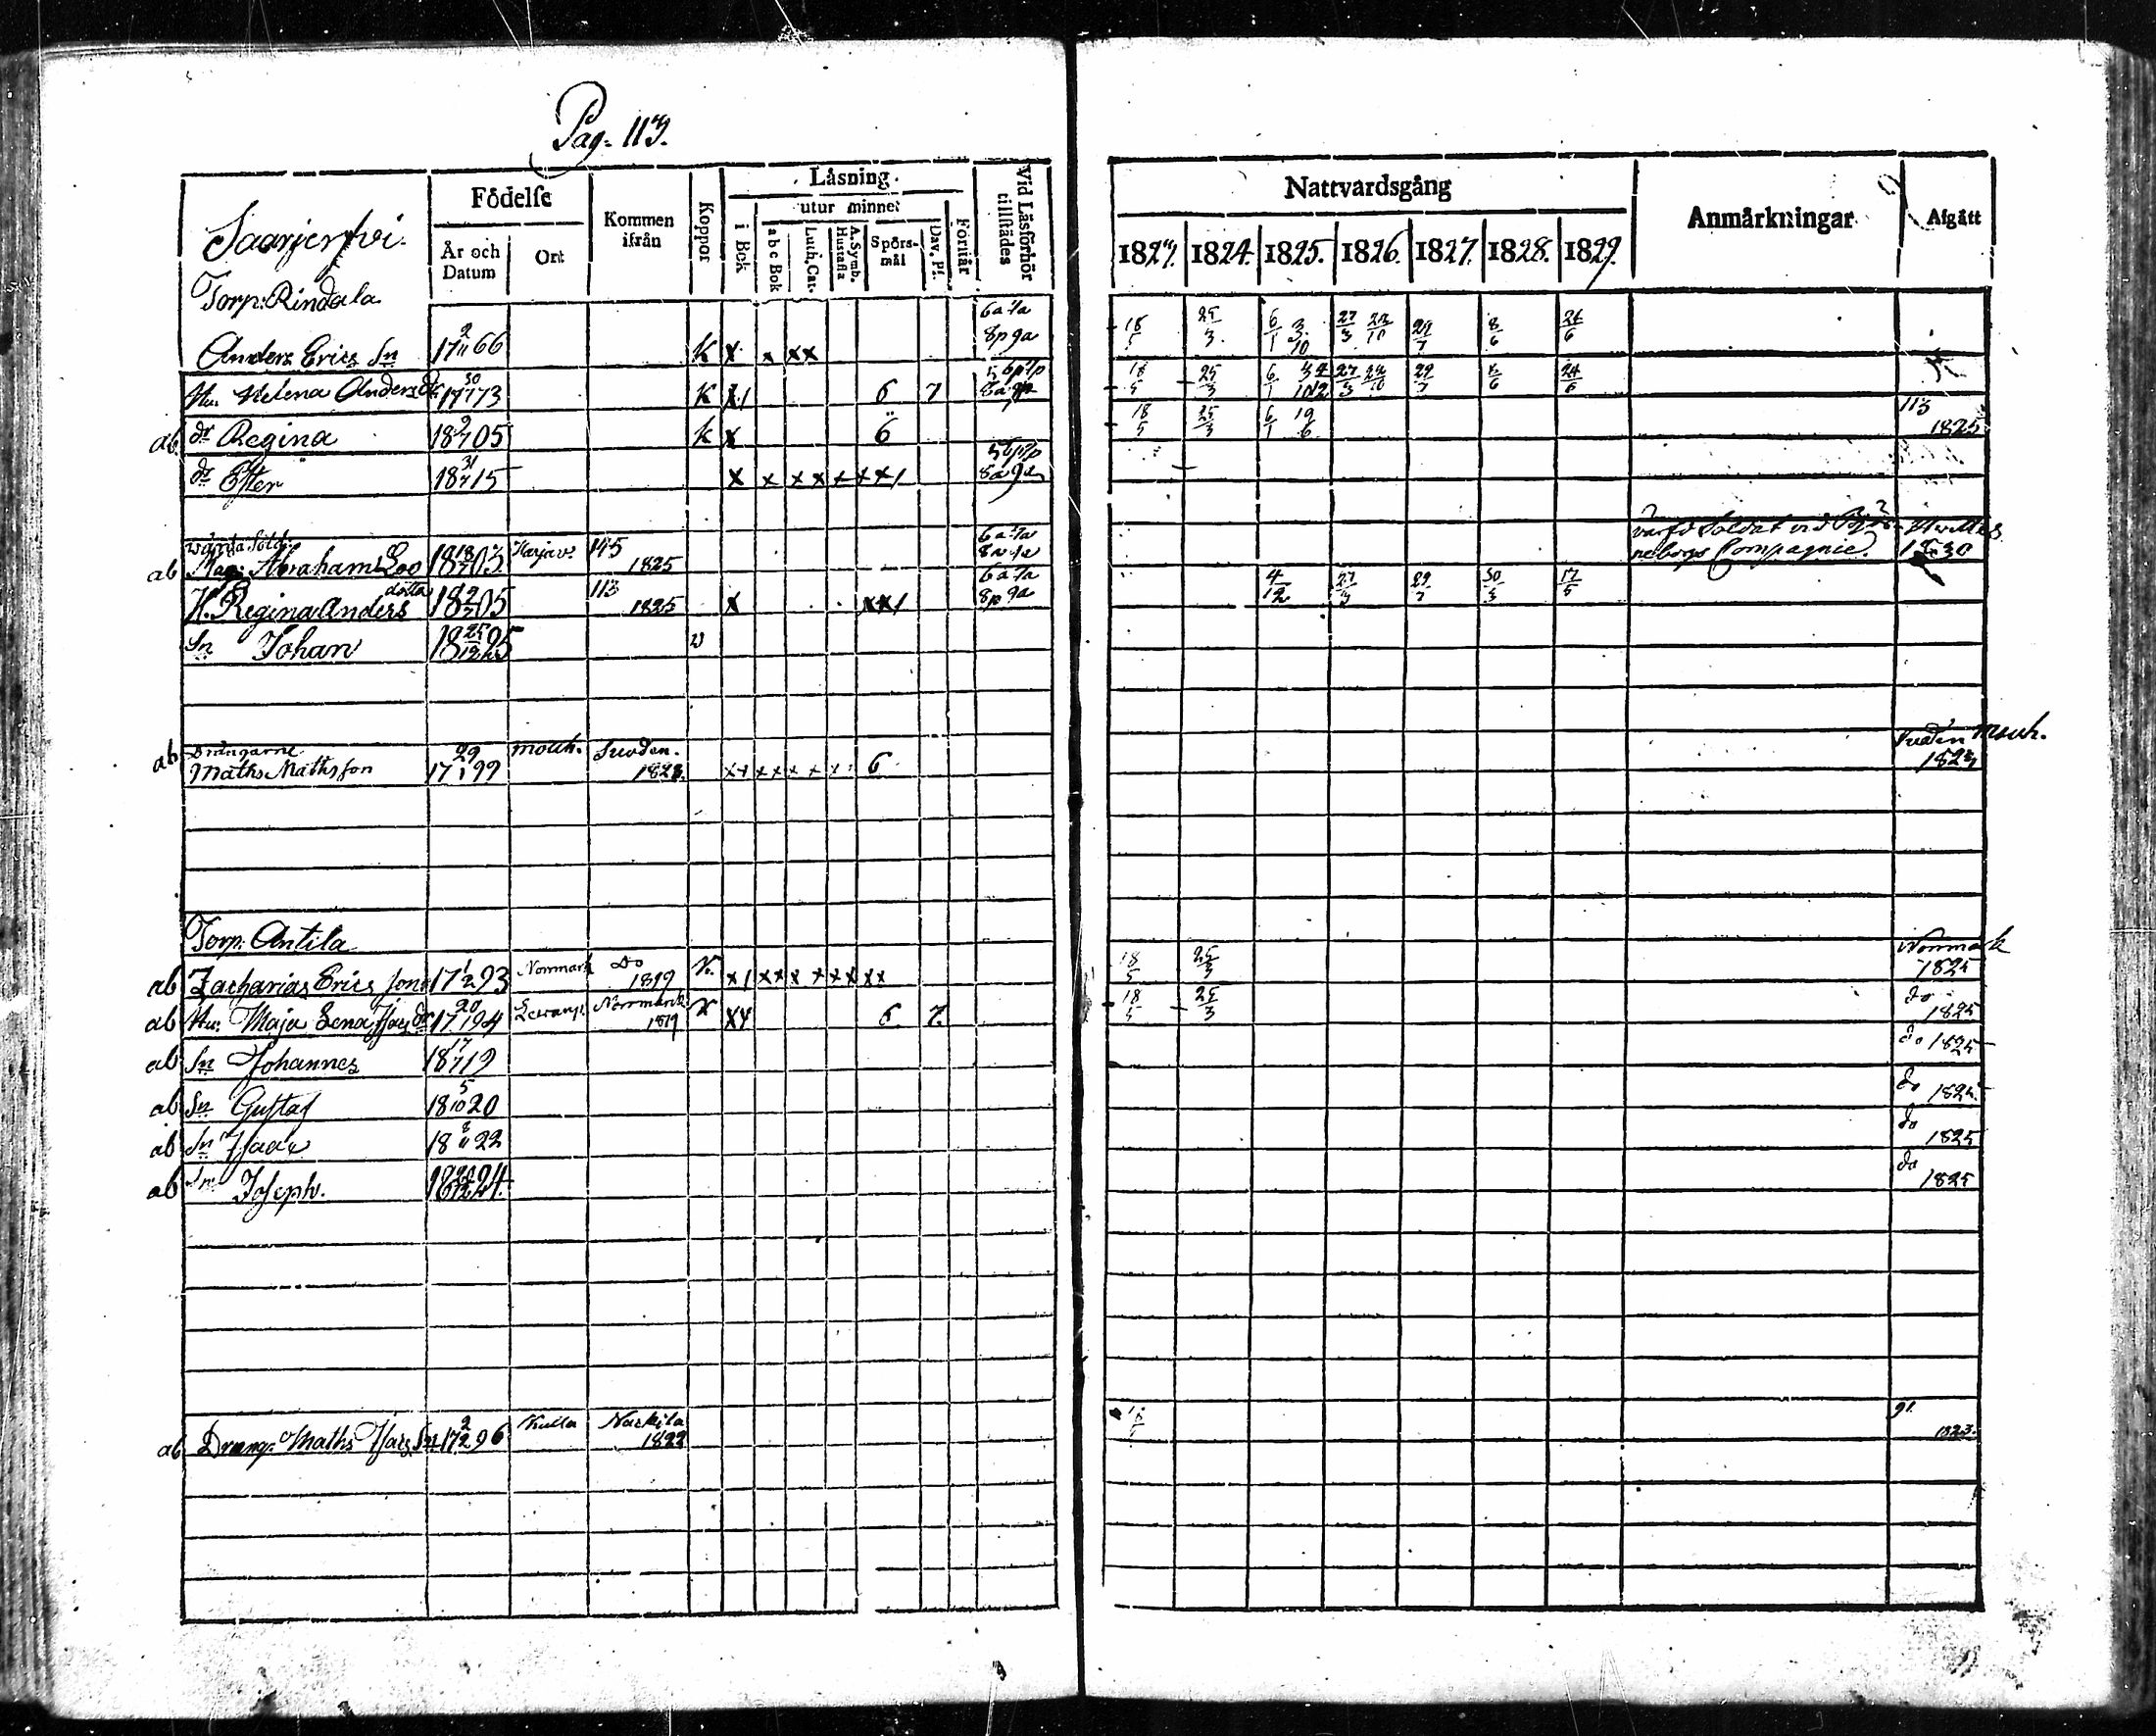 Pag. 113.
Saarjerfvi.
Födelse
År och Datum
Ort
Kommen ifrån
Koppor
Läsning
i Bok
utur minnet
a b c Bok
Luth. Cat.
A. Symb. Hustafla
Spörsmål
Dav. Ps.
Förstår
Vid Läsförhör tillstädes
Nattvardsgång
1823. 1824. 1825. 1826. 1827. 1828. 1829.
Anmärkningar
Afgått
Torp: Rindala
Anders Erics Sn 17 2/11 66 K x x xx 6a 7a 8p 9a 18/5 25/3 6/1 3/10 27/3 22/10 29/7 8/6 24/6
Hu. Helena Anders dr 17 30/7 73 K x/ 6 7 18/5 25/3 6/1 27/3 22/10 29/7 8/6 24/6
ab dr Regina 18 9/7 05 K x 6 18/5 25/3 6/1 19/6 113 1825
dr Ester 18 31/7 15 x x x x x x x / 8a 9a
ab Abraham Loo 18 18/7 03 Harjav. 145 1825 6a 7a värfd Soldat vid Björneborgs Compagnie. 1830
H. Regina Anders dotter 18 9/7 05 113 1825 x xx/ 6a 7a 8p 9a 4/12 27/3 29/7 30/3 17/5
Sn Johan 18 25/12 25 v
ab Drängarne
Maths Mathsson 17 29/1 99 mouh. Suoden. 1823. xx xx x x x 6 Suden Mouh. 1823
Torp: Antila
ab Zacharias Erics son 17 1/2 93 Norrmark Do 1819 K x/ xx x x x x xx 18/5 25/3 Norrmark 1825
ab Hu. Maja Lena Isacs dr 17 20/1 94 Norrmark 1819 K xx 6 7. 18/5 25/3 do 1825
ab Sn Johannes 18 17/7 19 do 1825
ab Sn Gustaf 18 5/10 20 do 1825
ab Sn Isaac 18 8/11 22 do 1825
ab Sn Joseph. 18 /12 24 do 1825
ab Dräng. Maths Isacs Sn 17 2/2 96 Kulla Nackila 1822 18/5 91. 1823.